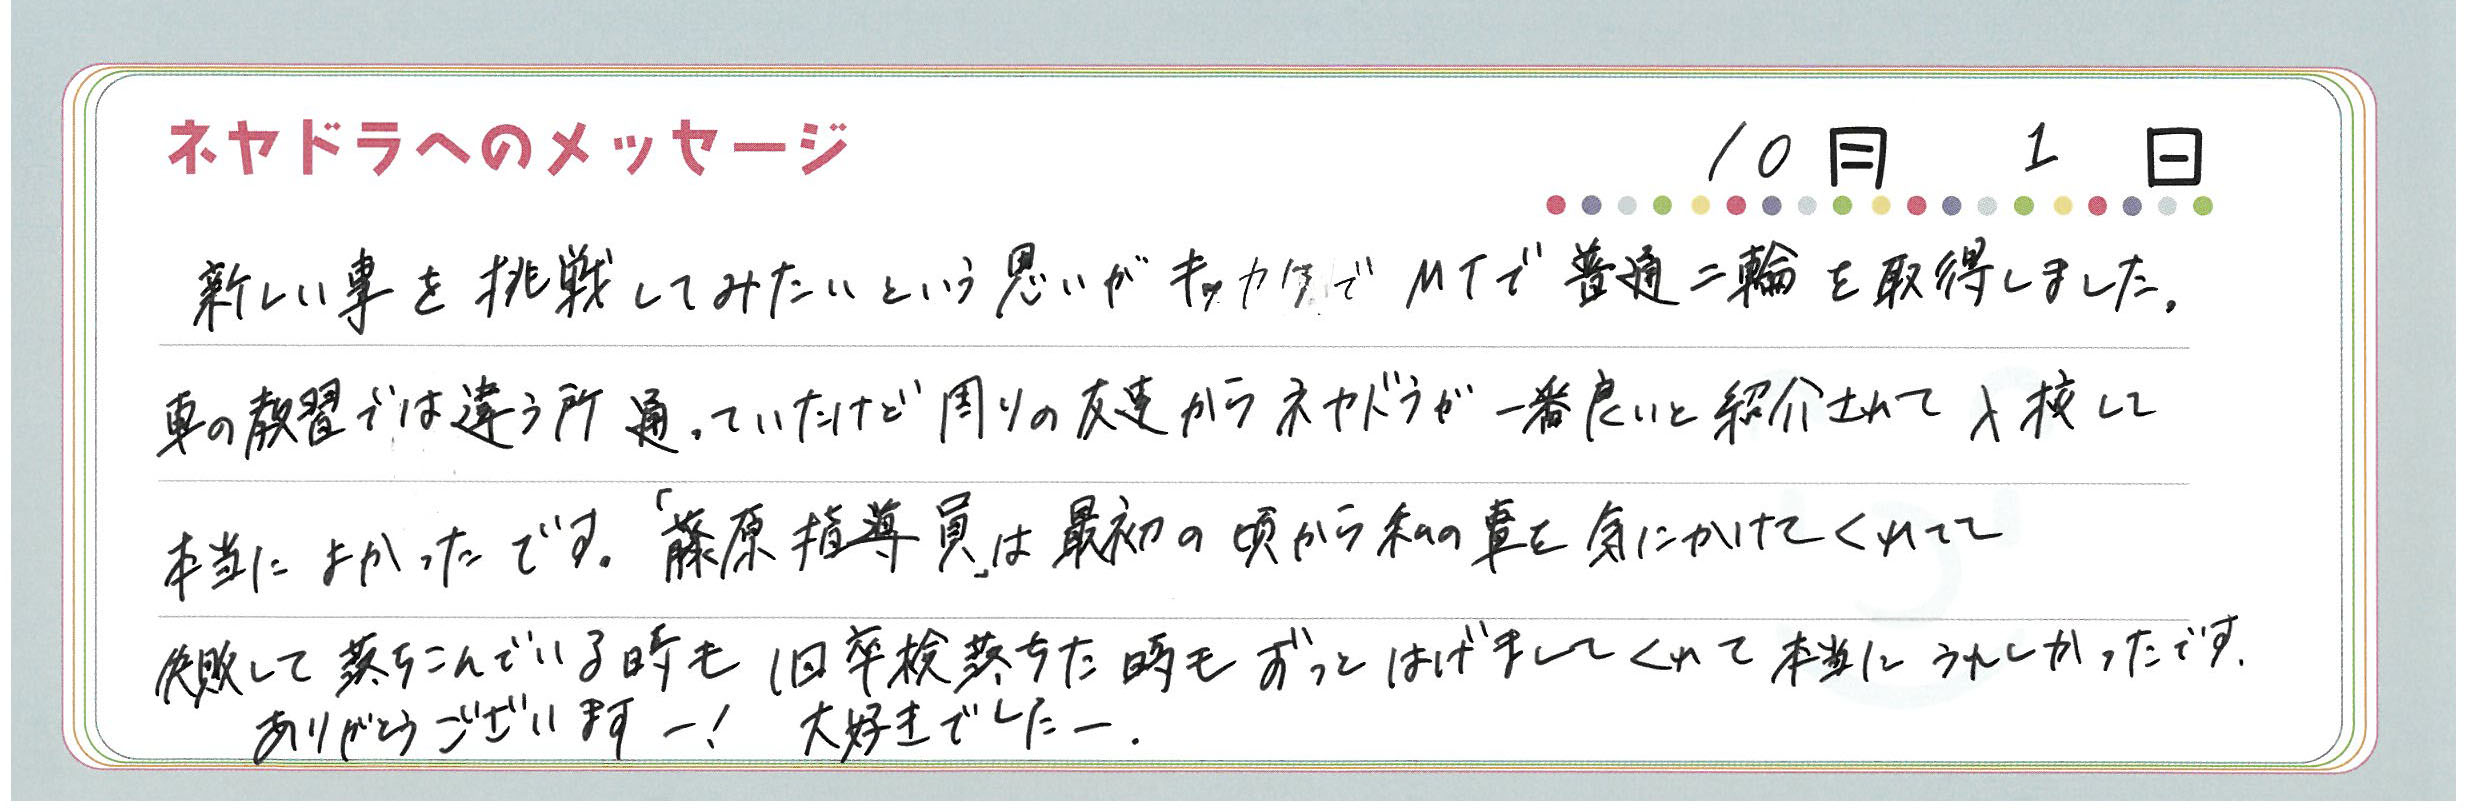 ネヤドラへのメッセージ
10月 1日
新しい事を挑戦してみたいという思いがキッカケでMTで普通二輪を取得しました。
車の教習では違う所通っていたけど周りの友達からネヤドラが一番良いと紹介されて入校して
本当によかったです。「藤原指導員」は最初の頃から私の事を気にかけてくれてて
失敗して落ちこんでいる時も1回卒検落ちた時もずっとはげましてくれて本当にうれしかったです。
ありがとうございますー! 大好きでしたー.